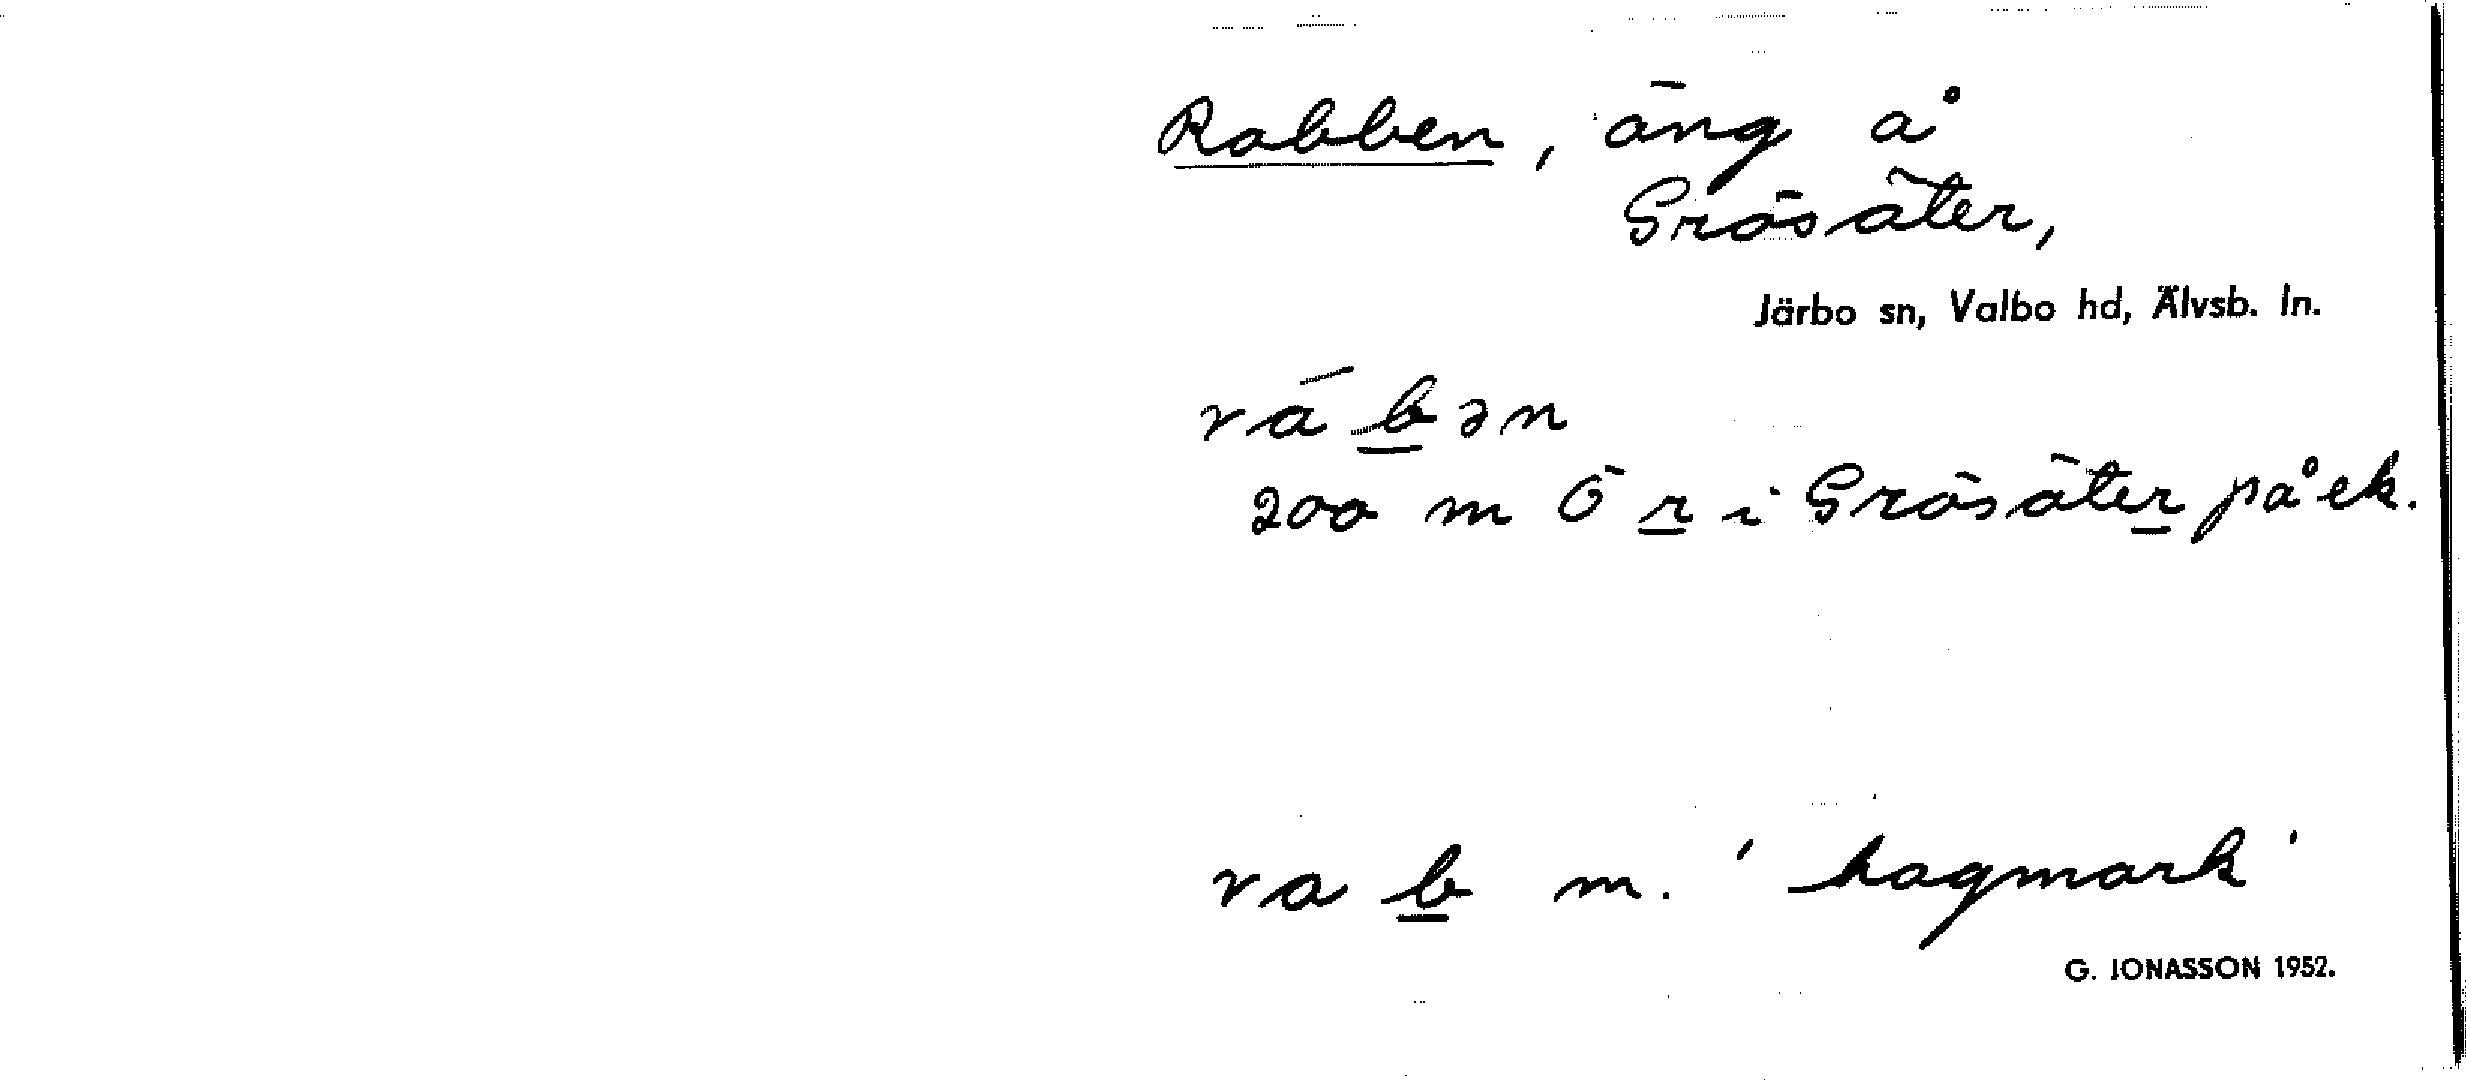 Rabben, äng å
Grösäter,
Järbo sn, Valbo hd, Älvsb. ln.
rábən
200 m Ö r i Grösäter på ek.
rab m. 'hagmark'
G. JONASSON 1952.